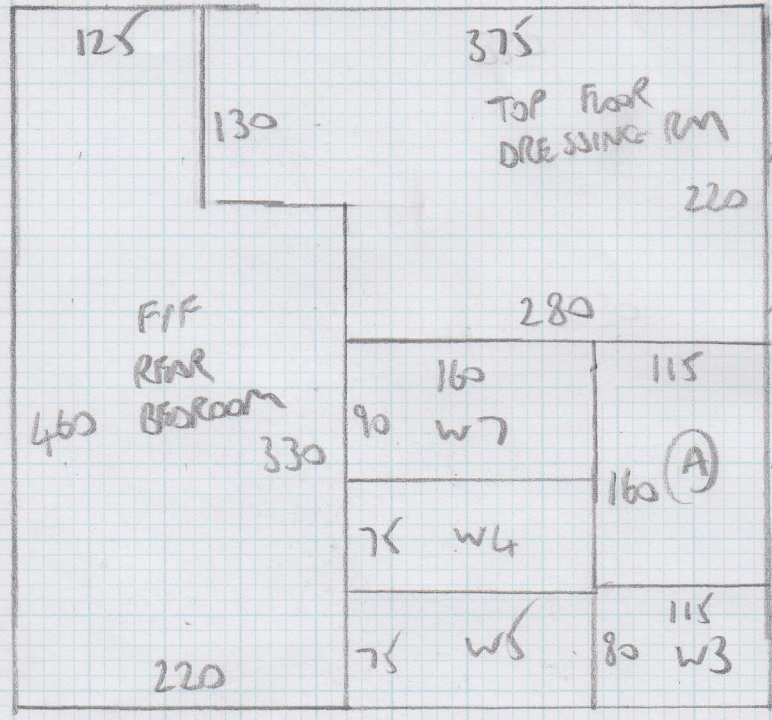 125
375
130
TOP FLOOR
DRESSING RM
220
280
F/F
REAR
BEDROOM
460
330
220
160
90 W7
115
160 A
75 W4
75 W5
115
80 W3